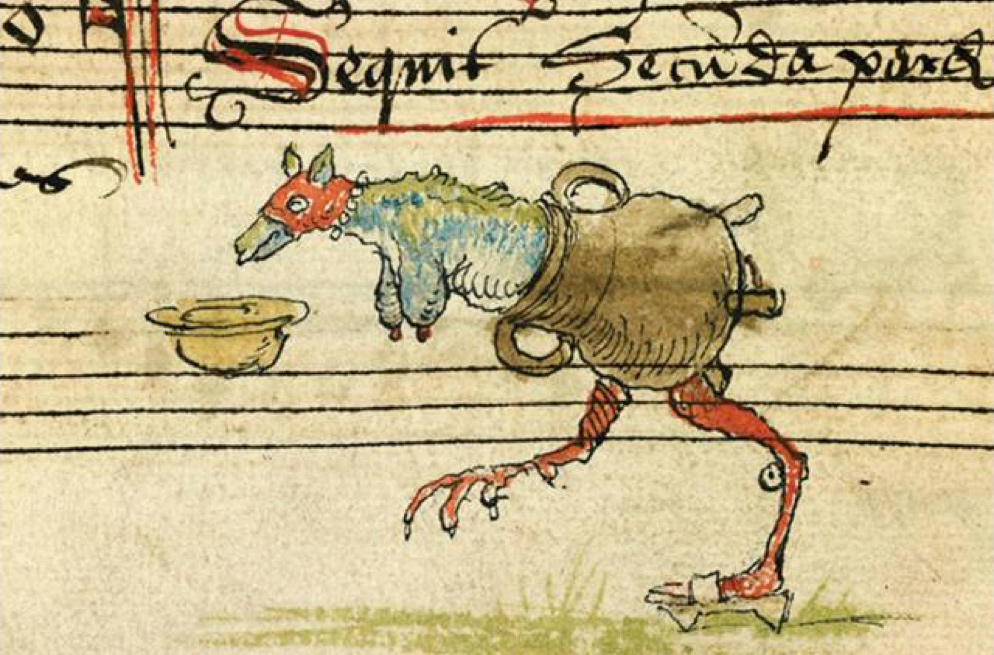 Sequit Secūda pars